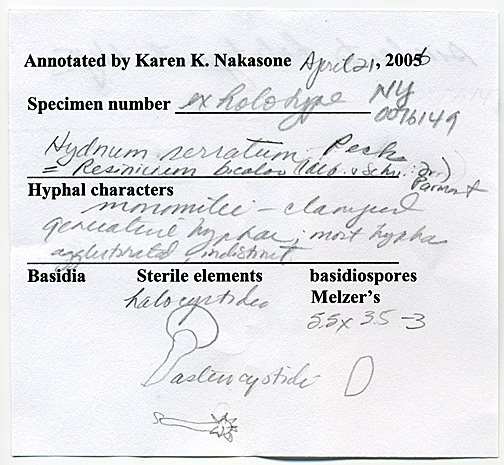 Annotated by Karen K. Nakasone April 21, 2006
Specimen number ex holotype NY
0076149
Hydnum serratum Peck
= Resinicium bicolor (Alb. & Schw.: Fr.)
Parmast
Hyphal characters
monomitic - clamped
generative hyphae; most hyphae
agglutinated indistinct
Basidia Sterile elements basidiospores
halocystidia Melzer's
5.5 x 3.5-3
astrocystidia